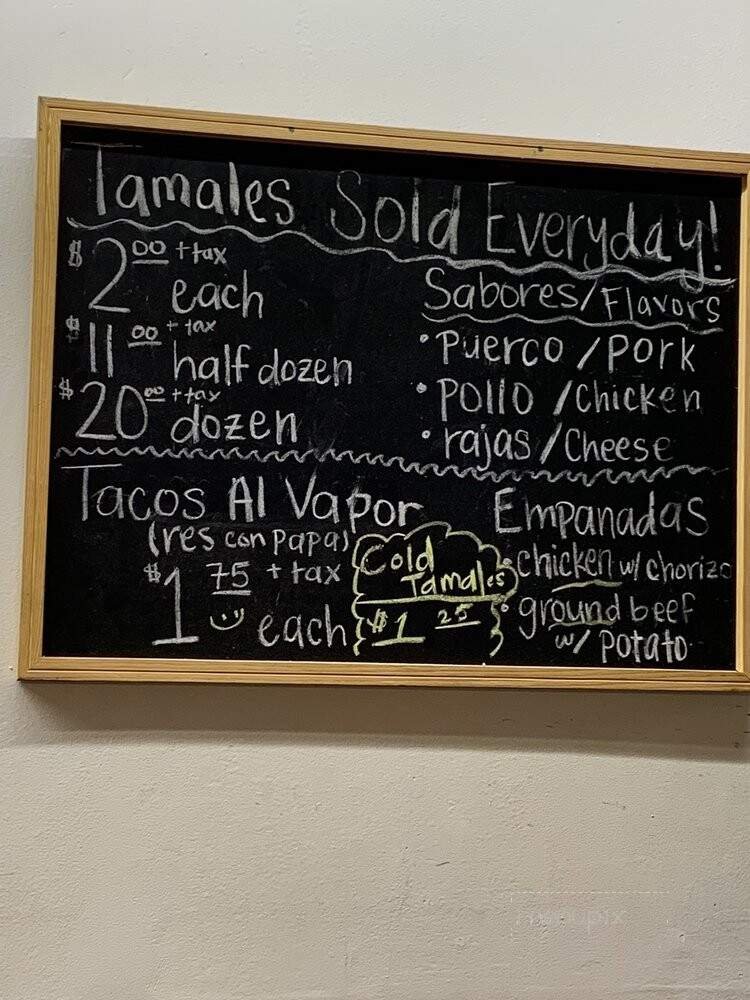 Tamales Sold Everyday!
$2.00 + tax
each
$11.00 + tax
half dozen
$20.00 + tax
dozen
Sabores/Flavors
• Puerco / Pork
• Pollo / Chicken
• rajas / Cheese
Tacos Al Vapor
(res con papa)
$1.75 + tax
each
Cold
Tamales
$1.25
Empanadas
• chicken w/ chorizo
• ground beef
w/ potato
menupix